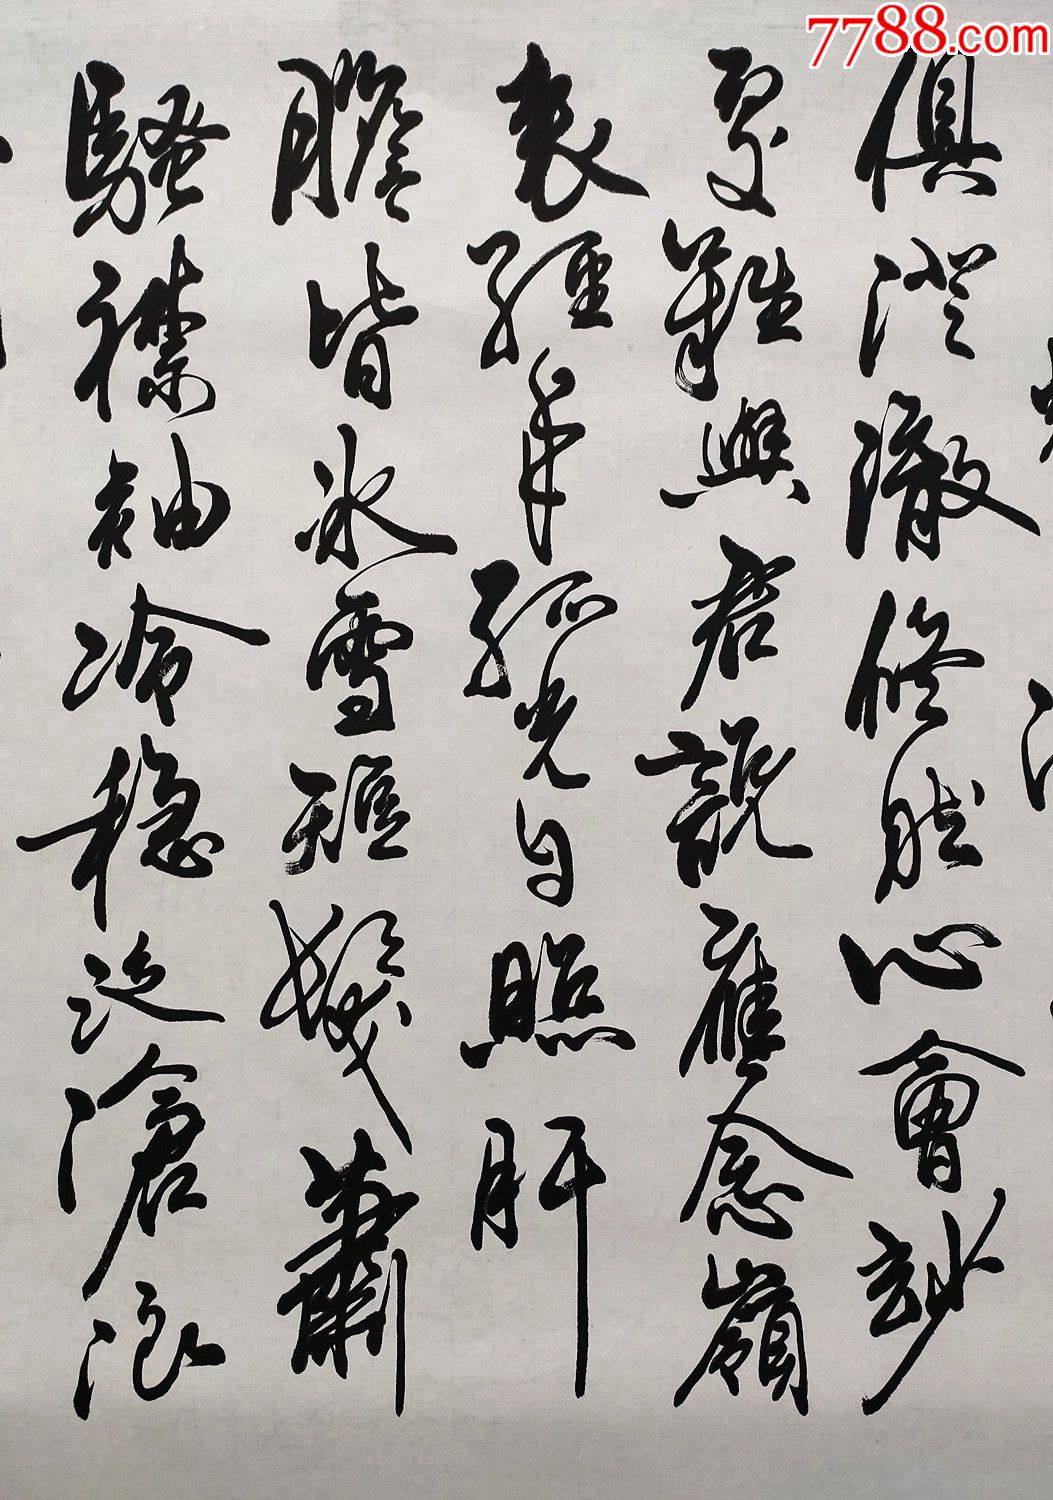 7788.com
俱澄澈修然心會玅
處難與君說應念嶺
表經年孤光自照肝
膽皆冰雪短髮蕭
騷襟袖冷穩泛滄浪